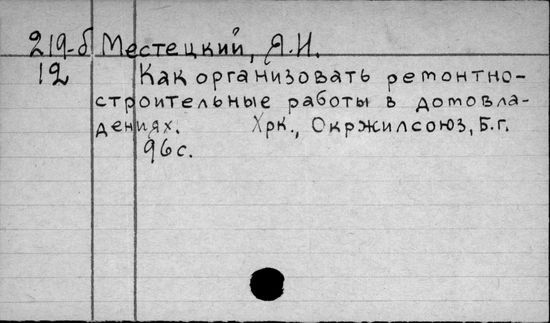 219-б Местецкий, Я.И.
12 Как организовать ремонтно-
строительные работы в домовла-
дениях. Хрк., Окржилсоюз, Б.г.
96 с.